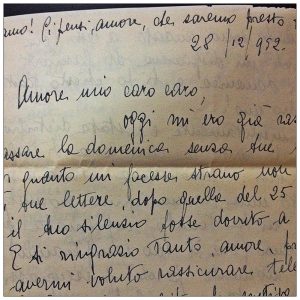 amo! Ci pensi, amore, che saremo presto
28/12/952.
Amore mio caro caro,
oggi mi ero già ras
assare la domenica senza tue
quanto mi facesse strano non
tue lettere, dopo quella del 25
il tuo silenzio fosse dovuto a
E ti ringrazio tanto, amore,
avermi voluto rassicurare tele